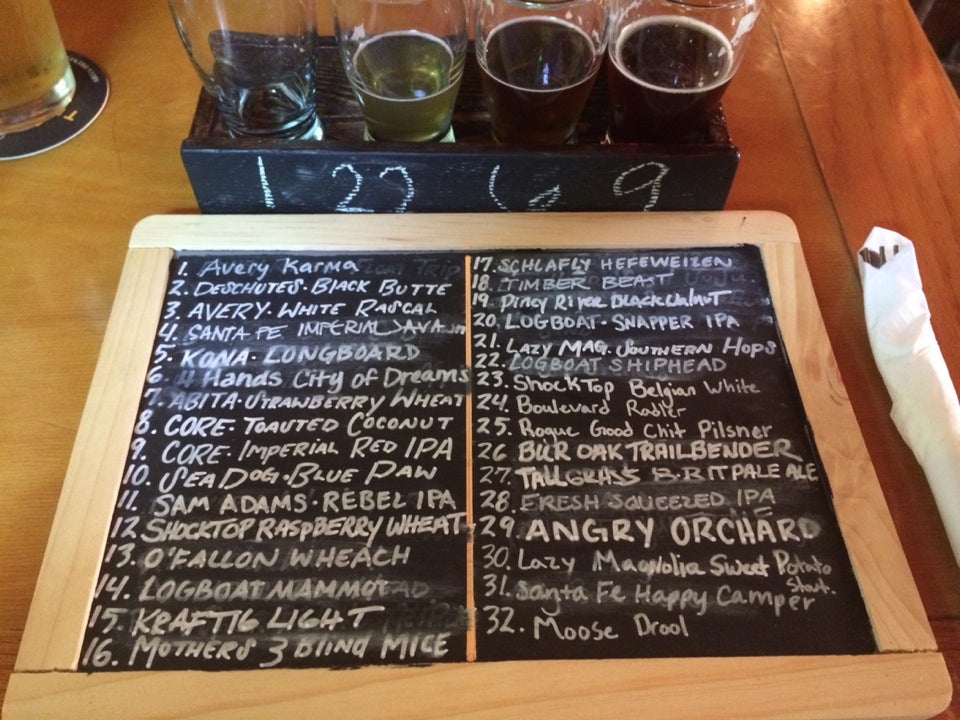 1 22 6 9
1. Avery Karma
2. DESCHUTES. BLACK BUTTE
3. AVERY. WHITE RASCAL
4. SANTA FE IMPERIAL JAVA
5. KONA. LONGBOARD
6. 4 Hands City of Dreams
7. ABITA. STRAWBERRY WHEAT
8. CORE. TOASTED COCONUT
9. CORE. IMPERIAL RED IPA
10. SEA DOG. BLUE PAW
11. SAM ADAMS. REBEL IPA
12. SHOCKTOP RASPBERRY WHEAT
13. O'FALLON WHEACH
14. LOGBOAT MAMMOT
15. KRAFTIG LIGHT
16. MOTHERS 3 BLIND MICE
17. SCHLAFLY HEFEWEIZEN
18. TIMBER BEAST
19. Piney River BLACK WALNUT
20. LOGBOAT. SNAPPER IPA
21. LAZY MAG. SOUTHERN HOPS
22. LOGBOAT SHIPHEAD
23. Shock Top Belgian White
24. Boulevard Radler
25. Rogue Good Chit Pilsner
26 BUR OAK TRAILBENDER
27. TALLGRASS BRIT PALE ALE
28. FRESH SQUEEZED IPA
29. ANGRY ORCHARD
30. Lazy Magnolia Sweet Potato
Stout.
31. Santa Fe Happy Camper
32. Moose Drool